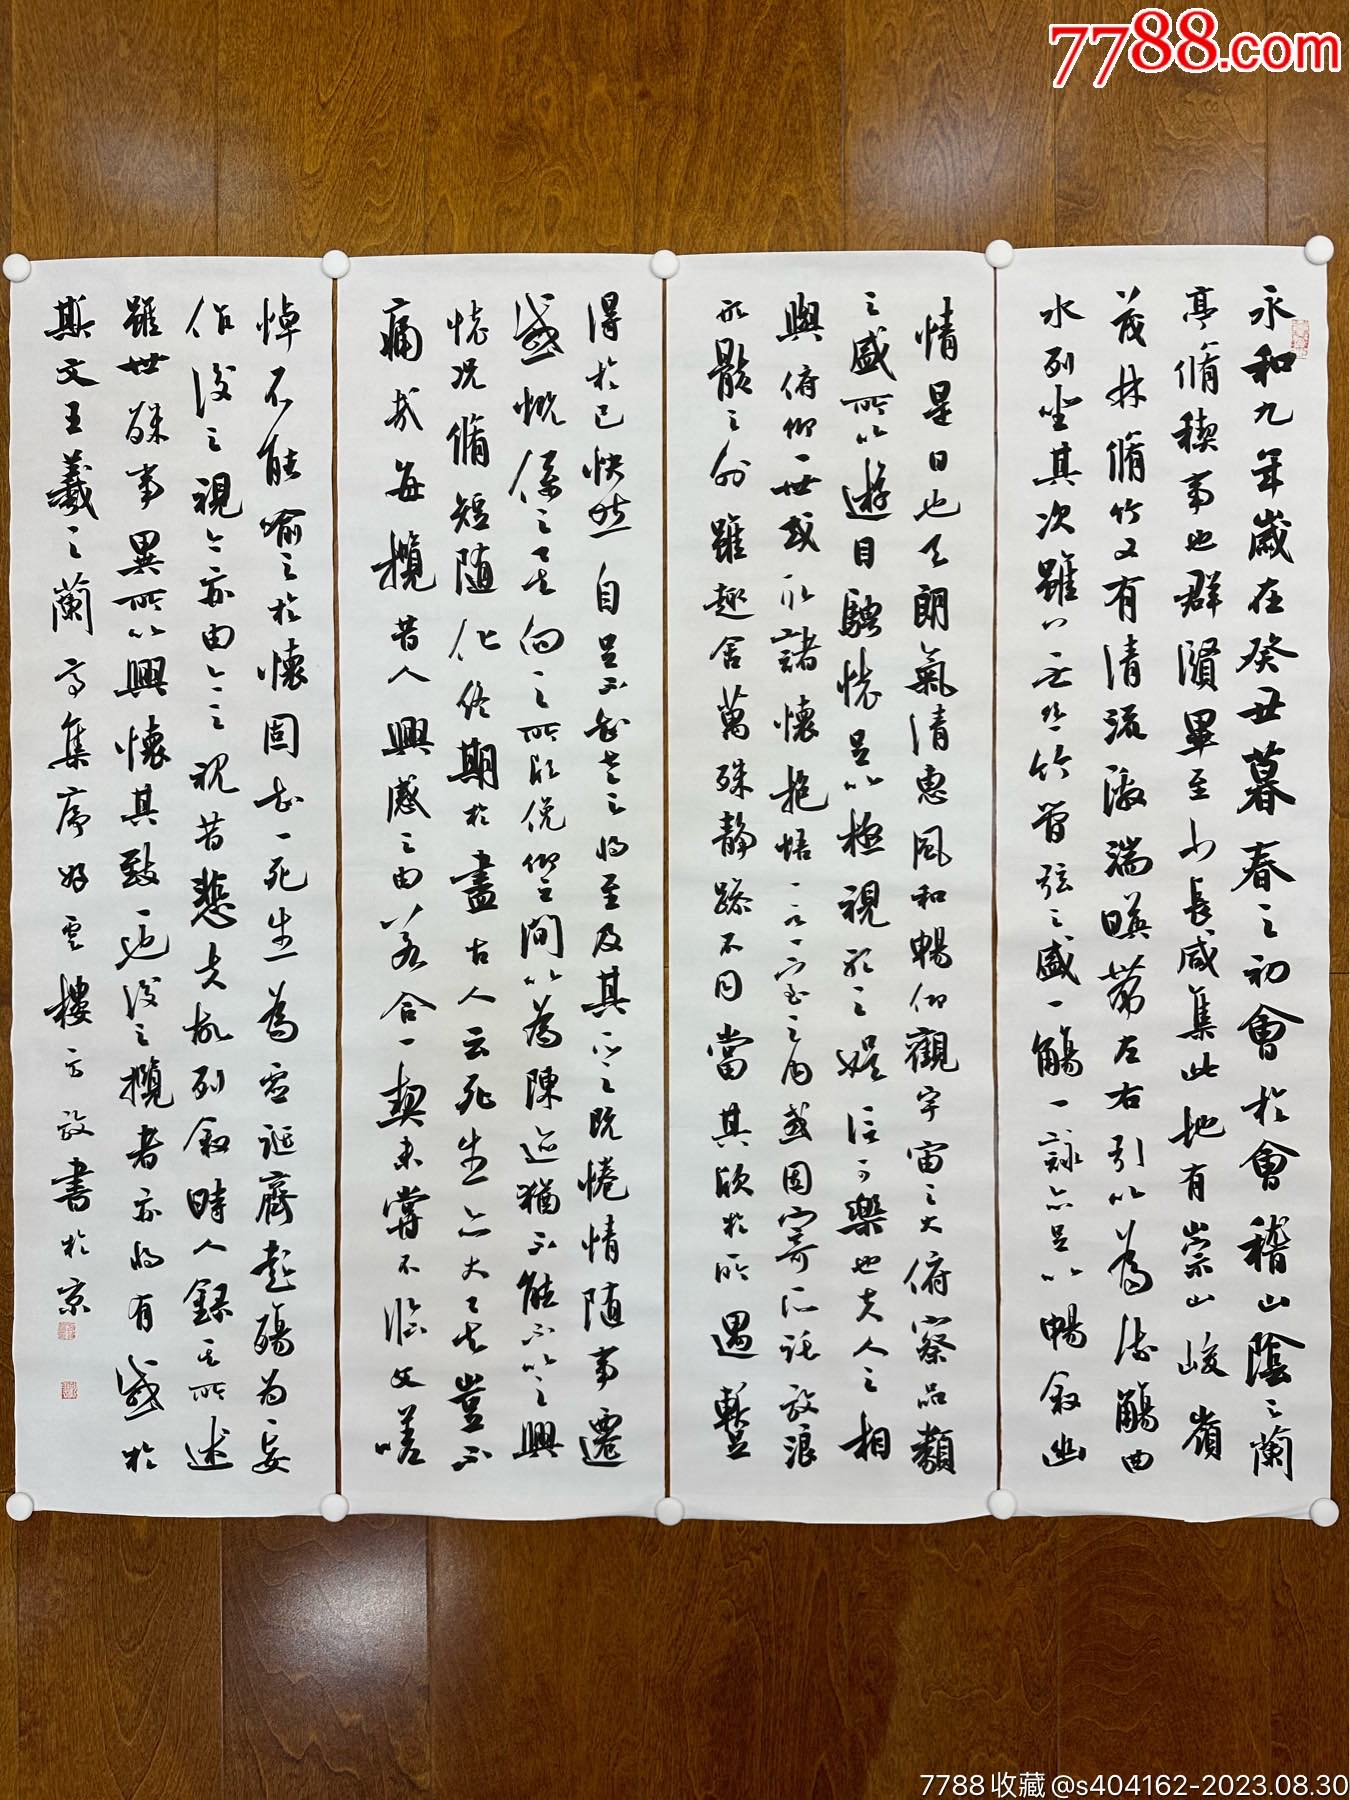 7788.com
永和九年歲在癸丑暮春之初會於會稽山陰之蘭
亭脩稧事也群賢畢至少長咸集此地有崇山峻嶺
茂林脩竹又有清流激湍暎帶左右引以為流觴曲
水列坐其次雖無絲竹管弦之盛一觴一詠亦足以暢敘幽
情是日也天朗氣清惠風和暢仰觀宇宙之大俯察品類
之盛所以遊目騁懷足以極視聽之娛信可樂也夫人之相
與俯仰一世或取諸懷抱悟言一室之內或因寄所託放浪
形骸之外雖趣舍萬殊靜躁不同當其欣於所遇暫
得於己快然自足不知老之將至及其所之既惓情隨事遷
感慨係之矣向之所欣俛仰之間以為陳迹猶不能不以之興
懷況脩短隨化終期於盡古人云死生亦大矣豈不
痛哉每攬昔人興感之由若合一契未嘗不臨文嗟
悼不能喻之於懷固知一死生為虛誕齊彭殤為妄
作後之視今亦由今之視昔悲夫故列敘時人錄其所述
雖世殊事異所以興懷其致一也後之攬者亦將有感於
斯文王羲之蘭亭集序好雲樓方放書於京
7788收藏@s404162-2023.08.30